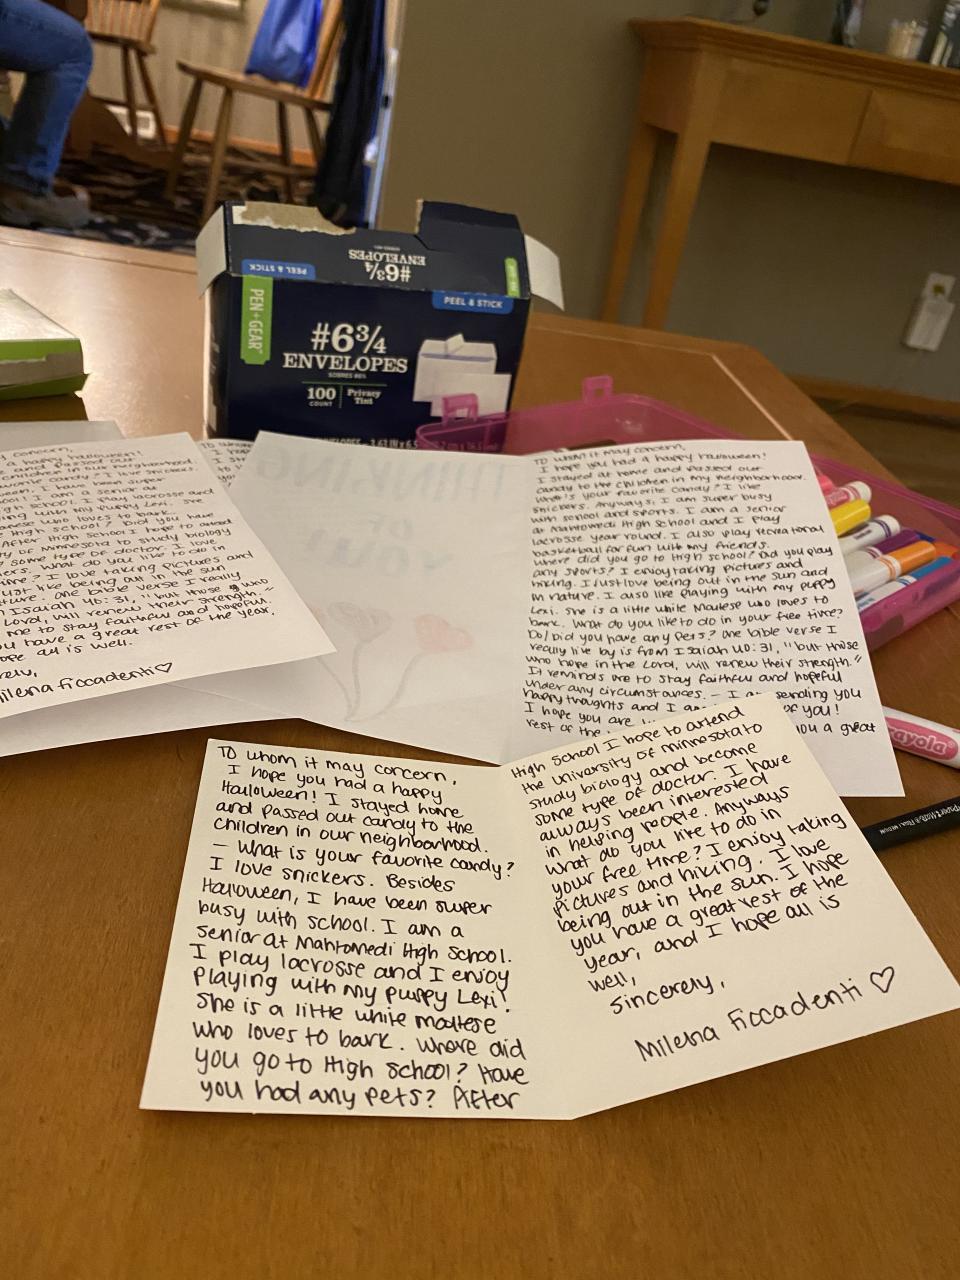 #6¾
ENVELOPES
PEEL & STICK
PEEL & STICK
PEN+GEAR
#6¾
ENVELOPES
100
COUNT
Privacy
Tint
THINKING
OF
YOU
concern,
a happy halloween!
and passed out
children in our neighborhood.
favorite candy? I love snickers.
I have been super
I am a senior at
school. I play lacrosse and
with my puppy Lexi.
who loves to bark.
High school? Did you have
After High School I hope to attend
of Minnesota to study biology
some type of doctor. I love
What do you like to do in
time? I love taking pictures and
just like being all in the sun
One bible verse I really
Isaiah 40:31, "but those who
Lord, will renew their strength."
me to stay faithful and hopeful
you have a great rest of the year,
hope all is well.
Milena Ficcadenti♡
To whom it may concern,
I hope you had a happy halloween!
I stayed at home and passed out
candy to the children in my neighborhood.
What's your favorite candy? I like
snickers. Anyways, I am super busy
with school and sports. I am a senior
at Mahtomedi High School and I play
lacrosse year round. I also play recreational
basketball for fun with my friends.
Where did you go to High school? Did you play
any sports? I enjoy taking pictures and
hiking. I just love being out in the sun and
in nature. I also like playing with my puppy
Lexi. She is a little white Maltese who loves to
bark. What do you like to do in your free time?
Do/did you have any pets? One bible verse I
really live by is from Isaiah 40:31, "but those
who hope in the Lord, will renew their strength."
It reminds me to stay faithful and hopeful
under any circumstances. – I am sending you
happy thoughts and I of you!
I hope you are you a great
rest of the
crayola
To whom it may concern,
I hope you had a happy
Halloween! I stayed home
and passed out candy to the
children in our neighborhood.
– What is your favorite candy?
I love snickers. Besides
Halloween, I have been super
busy with school. I am a
senior at Mahtomedi High School.
I play lacrosse and I enjoy
playing with my puppy Lexi!
She is a little white maltese
who loves to bark. Where did
you go to High school? Have
you had any pets? After
High School I hope to attend
the university of minnesota to
study biology and become
some type of doctor. I have
always been interested
in helping people. Anyways
what do you like to do in
your free time? I enjoy taking
pictures and hiking. I love
being out in the sun. I hope
you have a great rest of the
year, and I hope all is
well,
Sincerely,
Milena Ficcadenti ♡